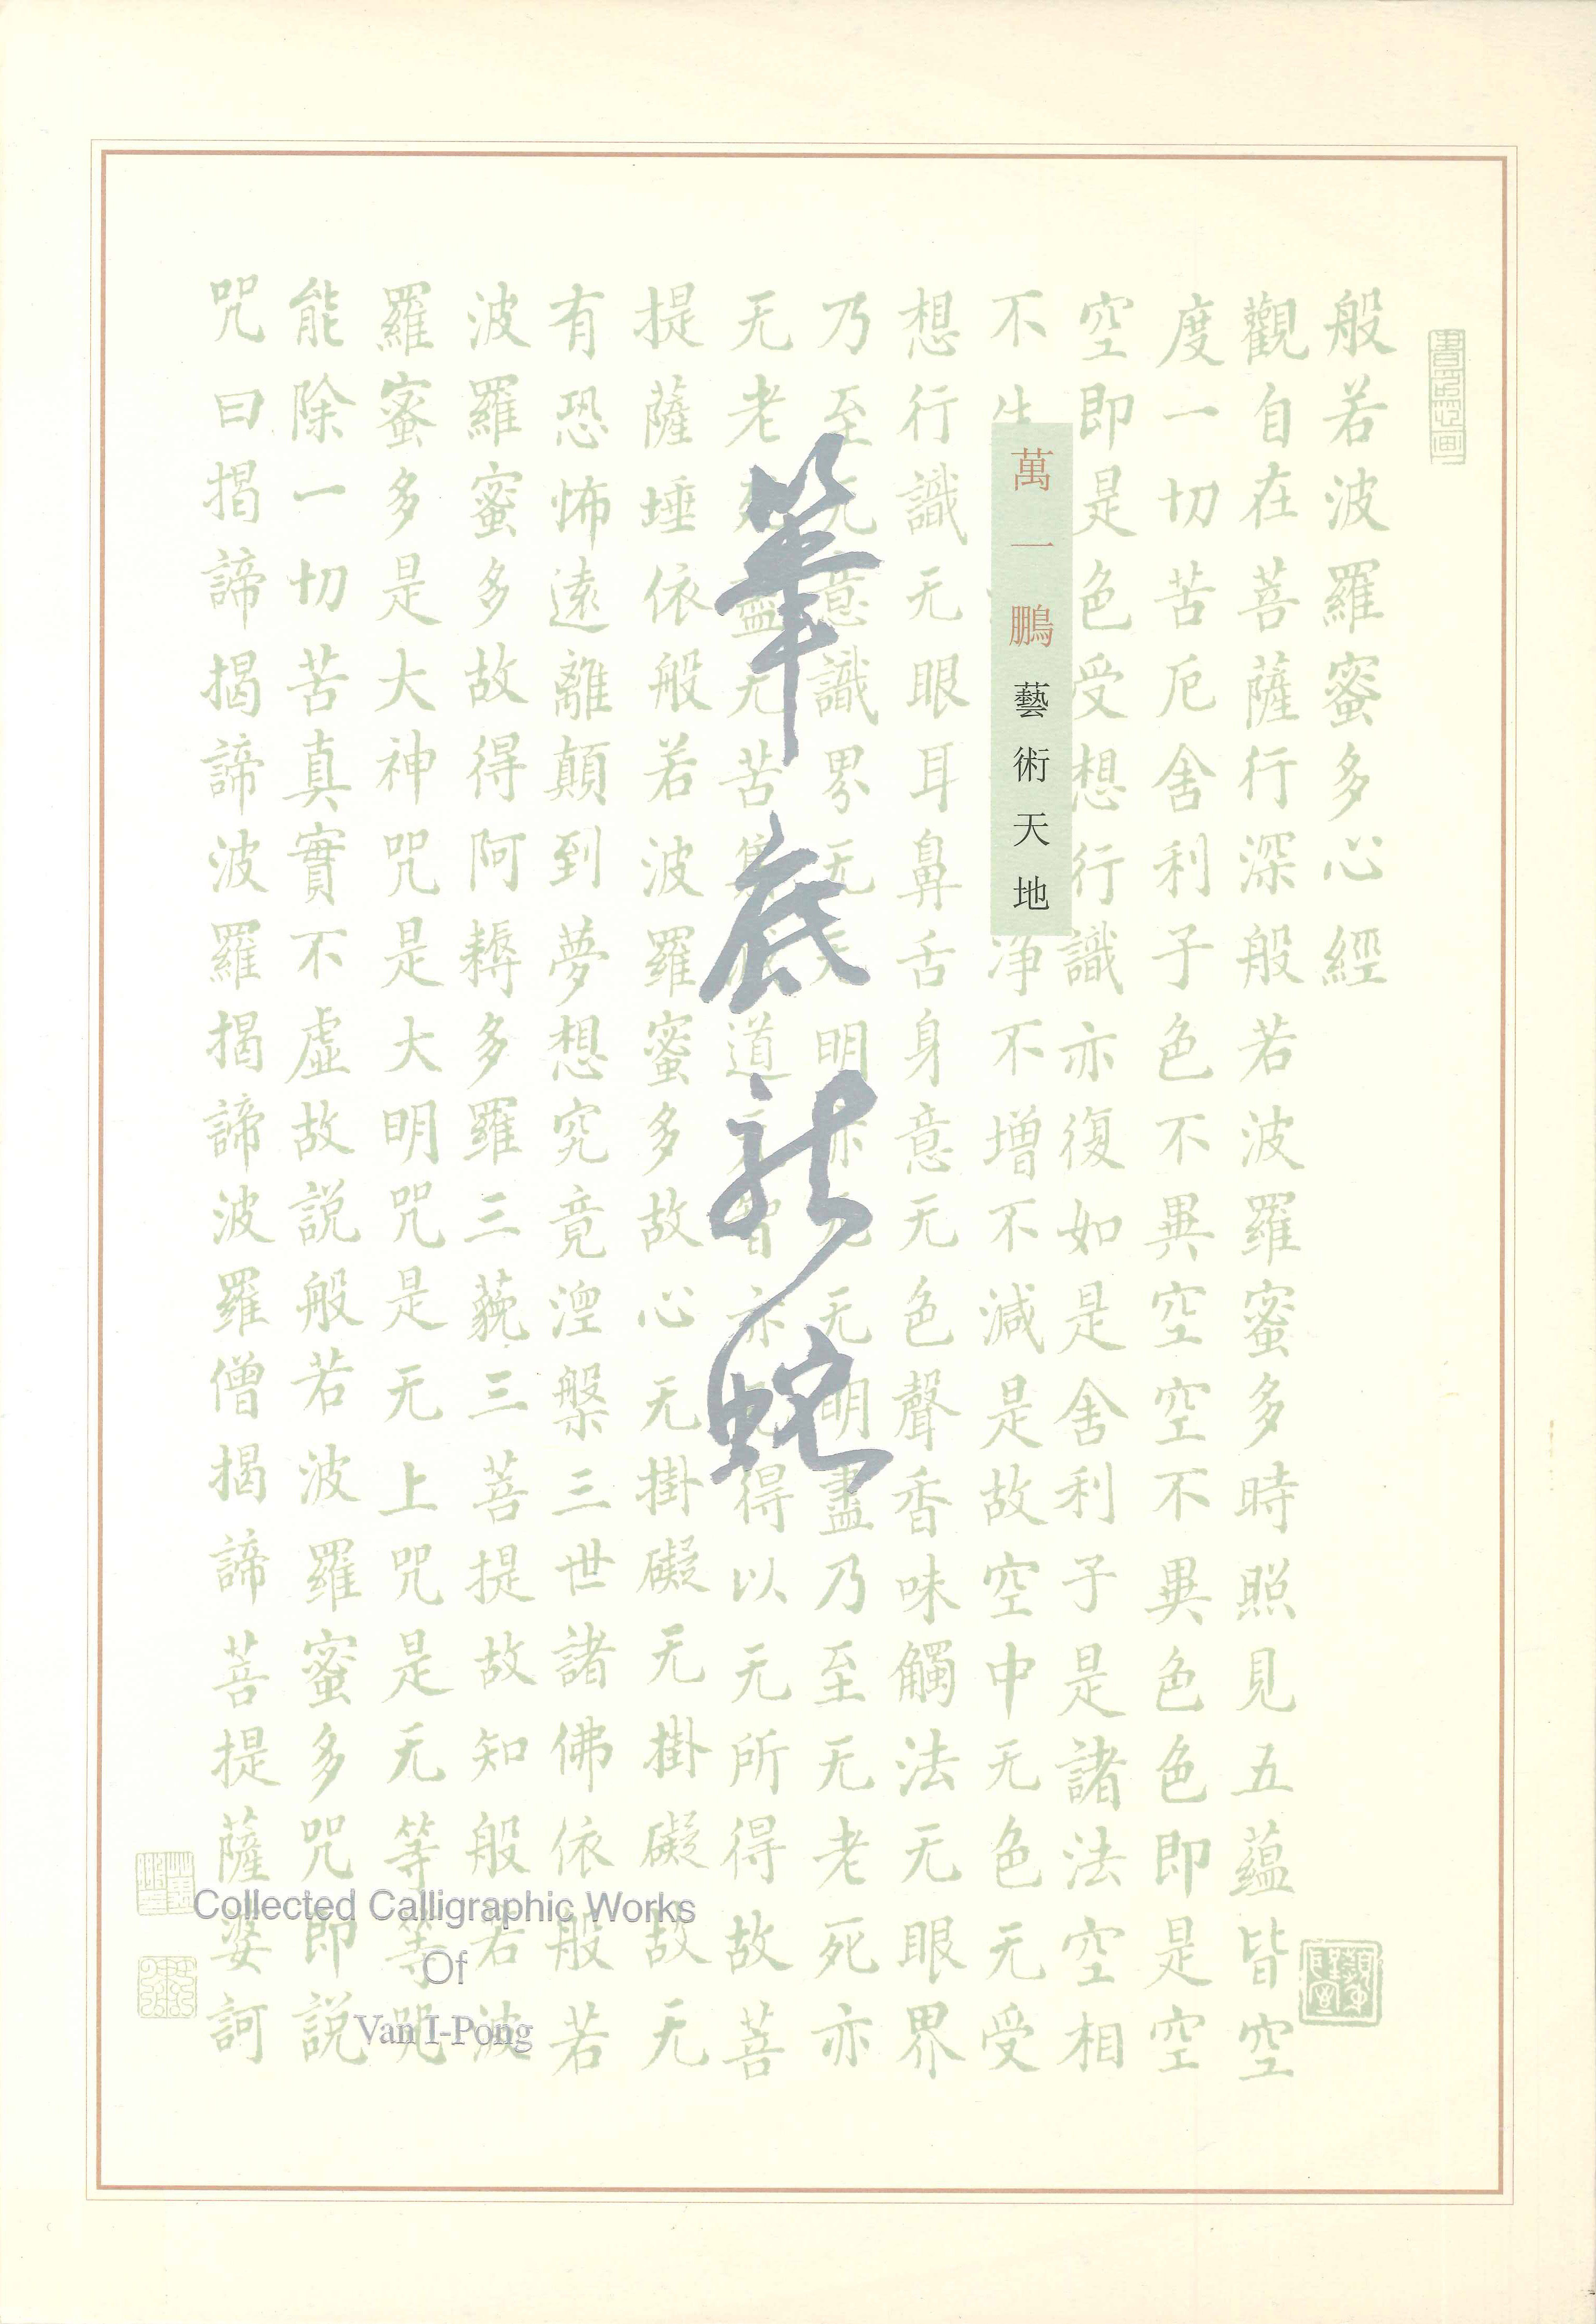 筆底龍蛇
萬一鵬藝術天地
般若波羅蜜多心經
觀自在菩薩行深般若波羅蜜多時照見五蘊皆空
度一切苦厄舍利子色不異空空不異色色即是空
空即是色受想行識亦復如是舍利子是諸法空相
不生淨不增不減是故空中无色无受
想行識无眼耳鼻舌身意无色聲香味觸法无眼界
乃至无意識界无无明亦无无明盡乃至无老死亦
无老死盡无苦集滅道无智亦无得以无所得故菩
提薩埵依般若波羅蜜多故心无掛礙无掛礙故无
有恐怖遠離顛到夢想究竟湼槃三世諸佛依般若
波羅蜜多故得阿耨多羅三藐三菩提故知般若波
羅蜜多是大神咒是大明咒是无上咒是无等等咒
能除一切苦真實不虛故說般若波羅蜜多咒即說
咒曰揭諦揭諦波羅揭諦波羅僧揭諦菩提薩婆訶
Collected Calligraphic Works
Of
Van I-Pong